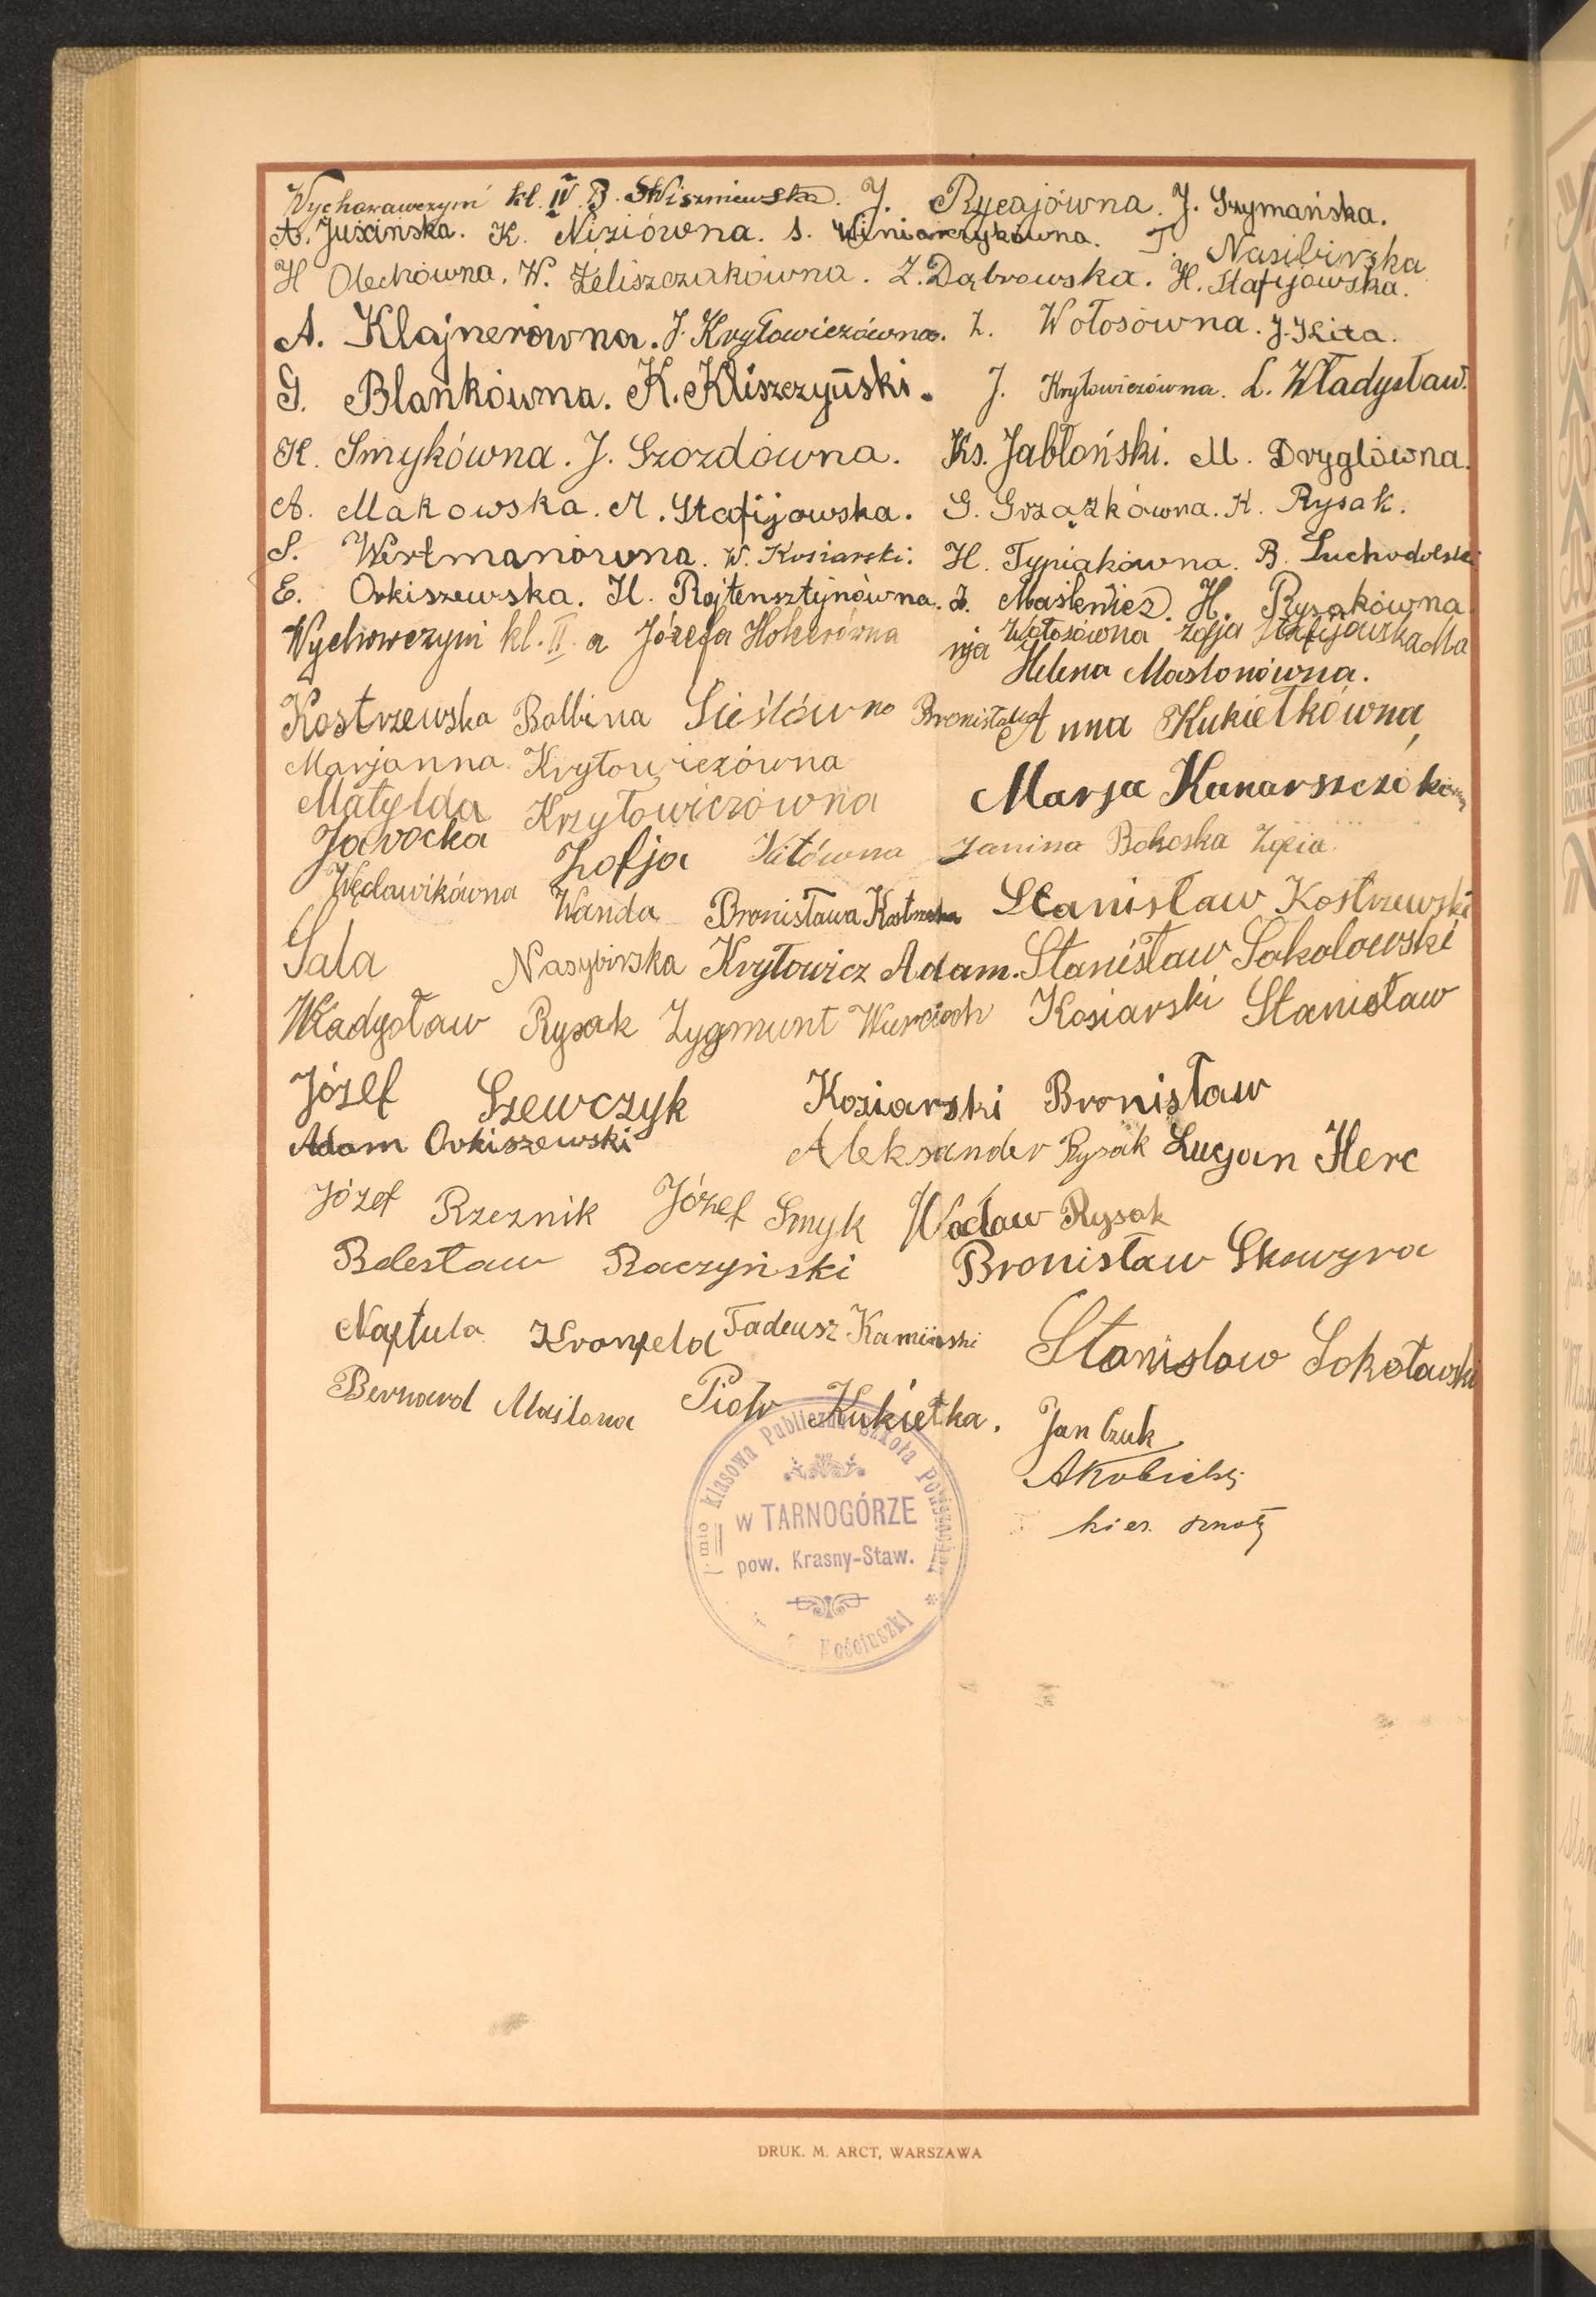 Wychowawczyni kl. IV B. SWiszniewska. J. Rycajówna. J. Szymańska.
A. Juścinska. K. Niziówna. S. Winiarczykówna. T. Nasibirska
H Olechówna. W. Żeliszczakówna. Z. Dąbrowska. H. Stafijowska.
A. Klajnerówna. J. Kryłowiczówna. Z. Wołosówna. J. Kita.
G. Blankówna. K. Kliszczyński. J. Kryłowiczówna. L. Władysław.
K. Smykówna. J. Szozdówna. Ks. Jabłoński. M. Dryglówna.
A. Makowska. M. Stafijowska. G. Grzązkówna. K. Rysak.
S. Wertmanówna. W. Kosiarski. H. Typiakówna. B. Suchodolski
E. Orkiszewska. H. Rojtensztejnówna. Z. Maśkiewicz. H. Rysakówna.
Wychowczyni kl. II a Józefa Hokerówna
Wołosówna Zofja Stafijowska Ma
nja Helena Maslonówna.
Kostrzewska Balbina Sieślówna Bronisława Anna Kukiełkówna,
Marjanna Kryłowiczówna
Matylda Krzyłowiczówna Marja Kanarszczików
Jarocka Zofja Kitówna Janina Bokoska Zofia
Węcławikówna Wanda Bronisława Kostrzeska Stanisław Kostrzewski
Sala Nasybirska Kryłowicz Adam. Stanisław Sokolowski
Władysław Rysak Zygmunt Kosiarski Stanisław
Józef Szewczyk Koziarski Bronisław
Adam Orkiszewski Aleksander Rysak Lucjan Herc
Józef Rzeznik Józef Smyk Wacław Rysak
Bolesław Raczyński Bronisław Skowyra
Naftula Kronfeld Tadeusz Kamiński Stanislaw Sokołowski
Bernard Maślona Piotr Kukiełka. Jan Czuk
AKubicki
kier. szkoły
klasowa Publiczna Szkoła Powszechna
w TARNOGÓRZE
pow. Krasny-Staw.
Kościuszki
DRUK. M. ARCT, WARSZAWA